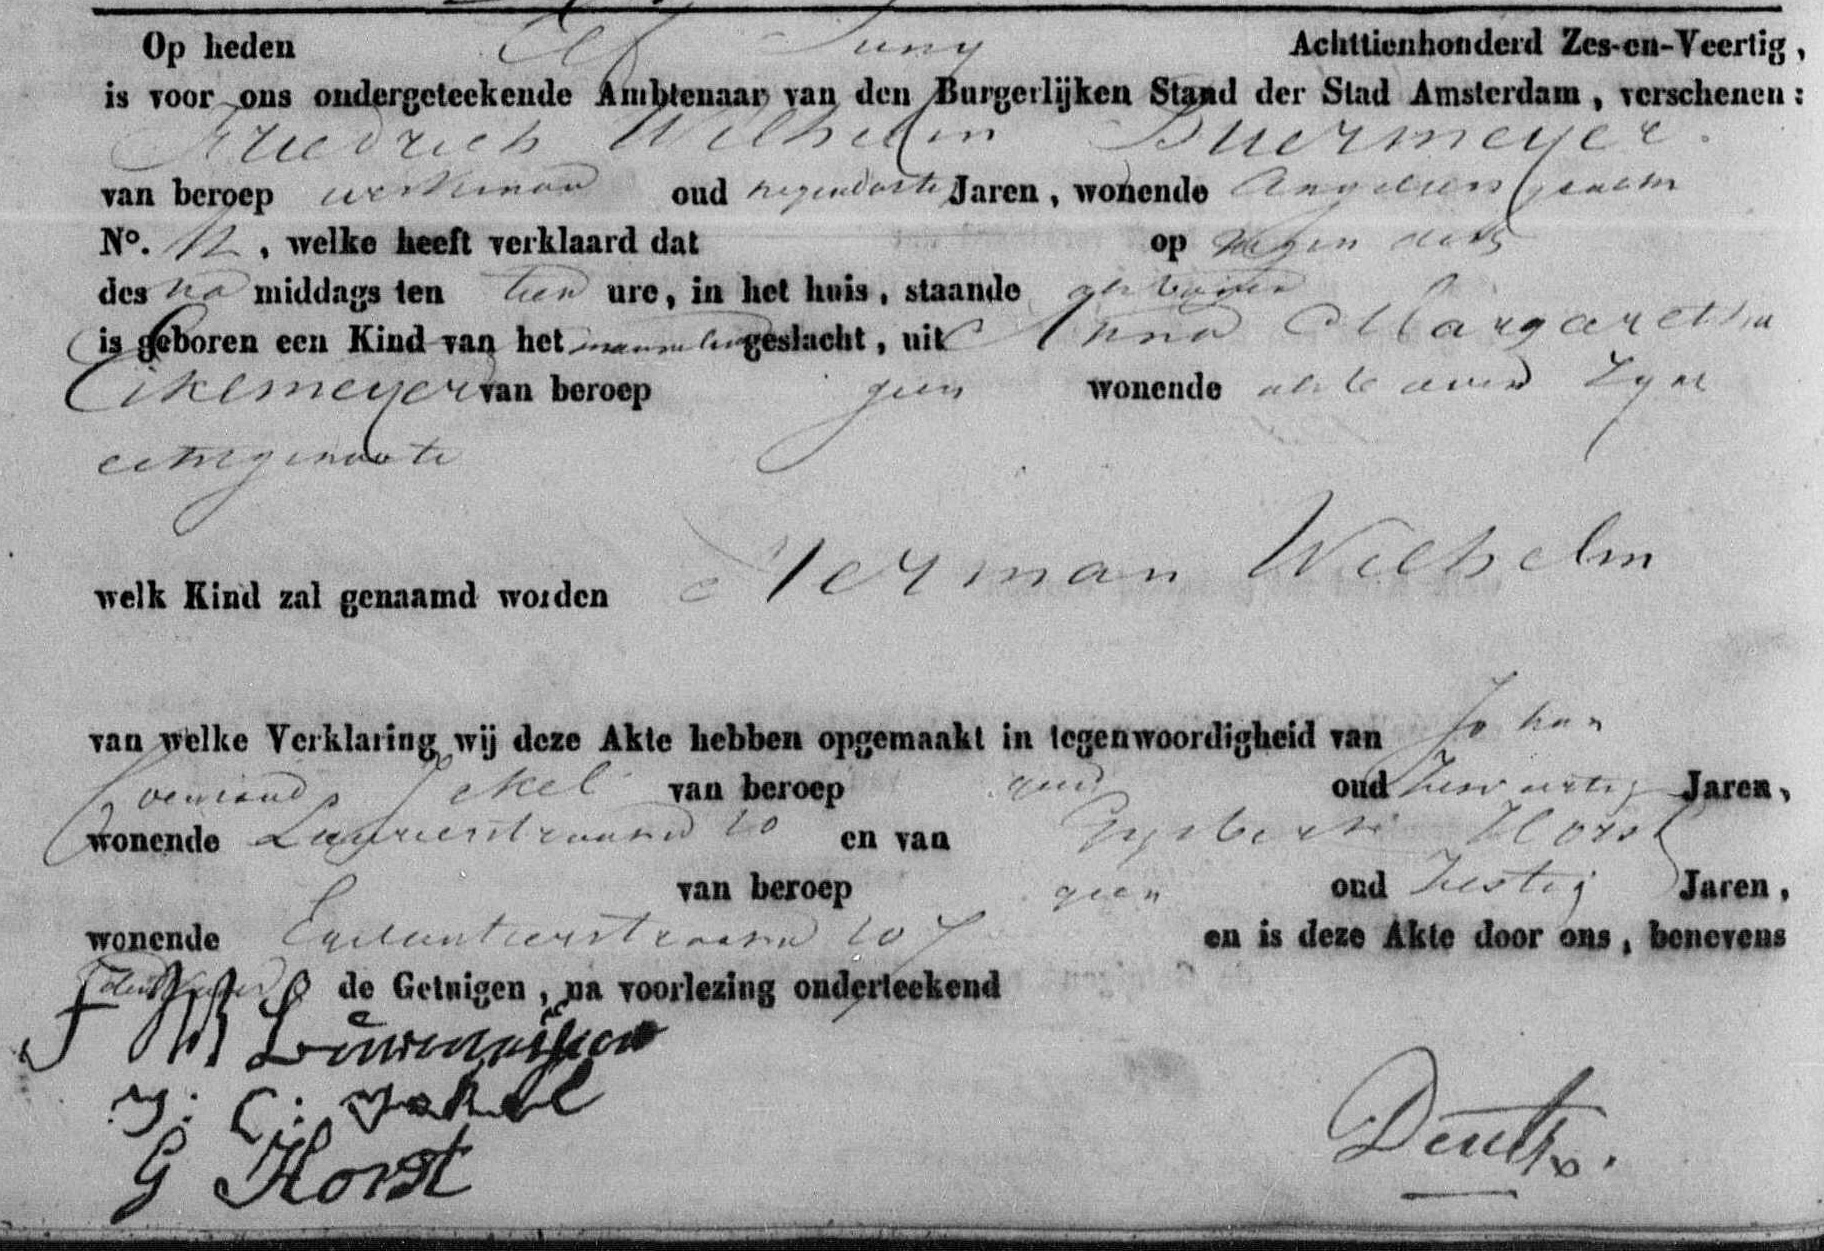 Op heden Elf Juny Achttienhonderd Zes-en-Veertig,
is voor ons ondergeteekende Ambtenaar van den Burgerlijken Stand der Stad Amsterdam, verschenen:
Friedrich Wilhelm Buermeyer
van beroep werkman oud negendertig Jaren, wonende
No. 12, welke heeft verklaard dat op negen dezer
des na middags ten tien ure, in het huis, staande als boven
is geboren een Kind van het mannelijk geslacht, uit Anna Margaretha
Eikemeyer van beroep geen wonende als boven zyne
echtgenoote
welk Kind zal genaamd worden Herman Wilhelm
van welke Verklaring wij deze Akte hebben opgemaakt in tegenwoordigheid van Johan
Coenraad Jekel van beroep geen oud Jaren,
wonende Laurierstraat 20 en van Gysbert Horst
van beroep geen oud Zestig Jaren,
wonende Egelantierstraat 207 en is deze Akte door ons, benevens
de Getuigen, na voorlezing onderteekend
F W Buermeijer
J: C: Jekel
G Horst